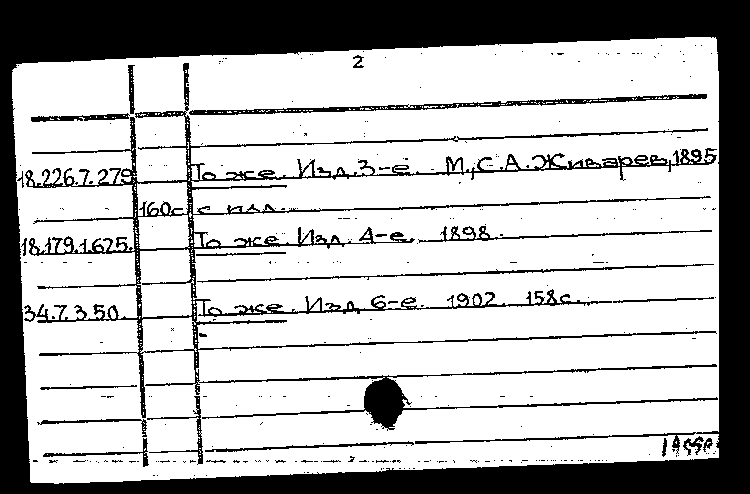 2
18.226.7.279 То же. Изд. 3-е. М., С.А. Живарев, 1895
160с. с илл.
18.179.1.625. То же. Изд. 4-е. 1898.
34.7.3.50. То же. Изд. 6-е. 1902. 158с.